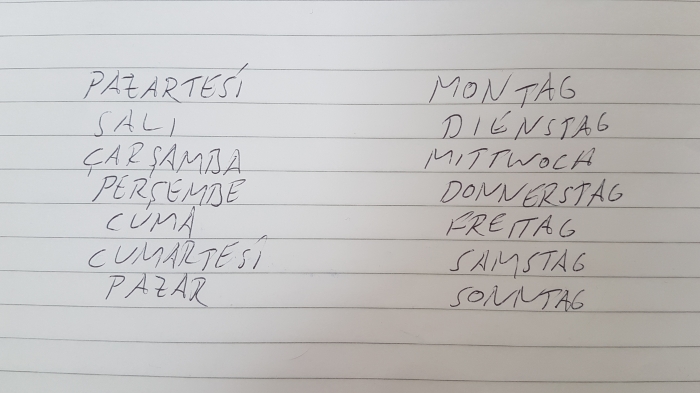 PAZARTESİ MONTAG
SALI DIENSTAG
ÇARŞAMBA MITTWOCH
PERŞEMBE DONNERSTAG
CUMA FREITAG
CUMARTESİ SAMSTAG
PAZAR SONNTAG